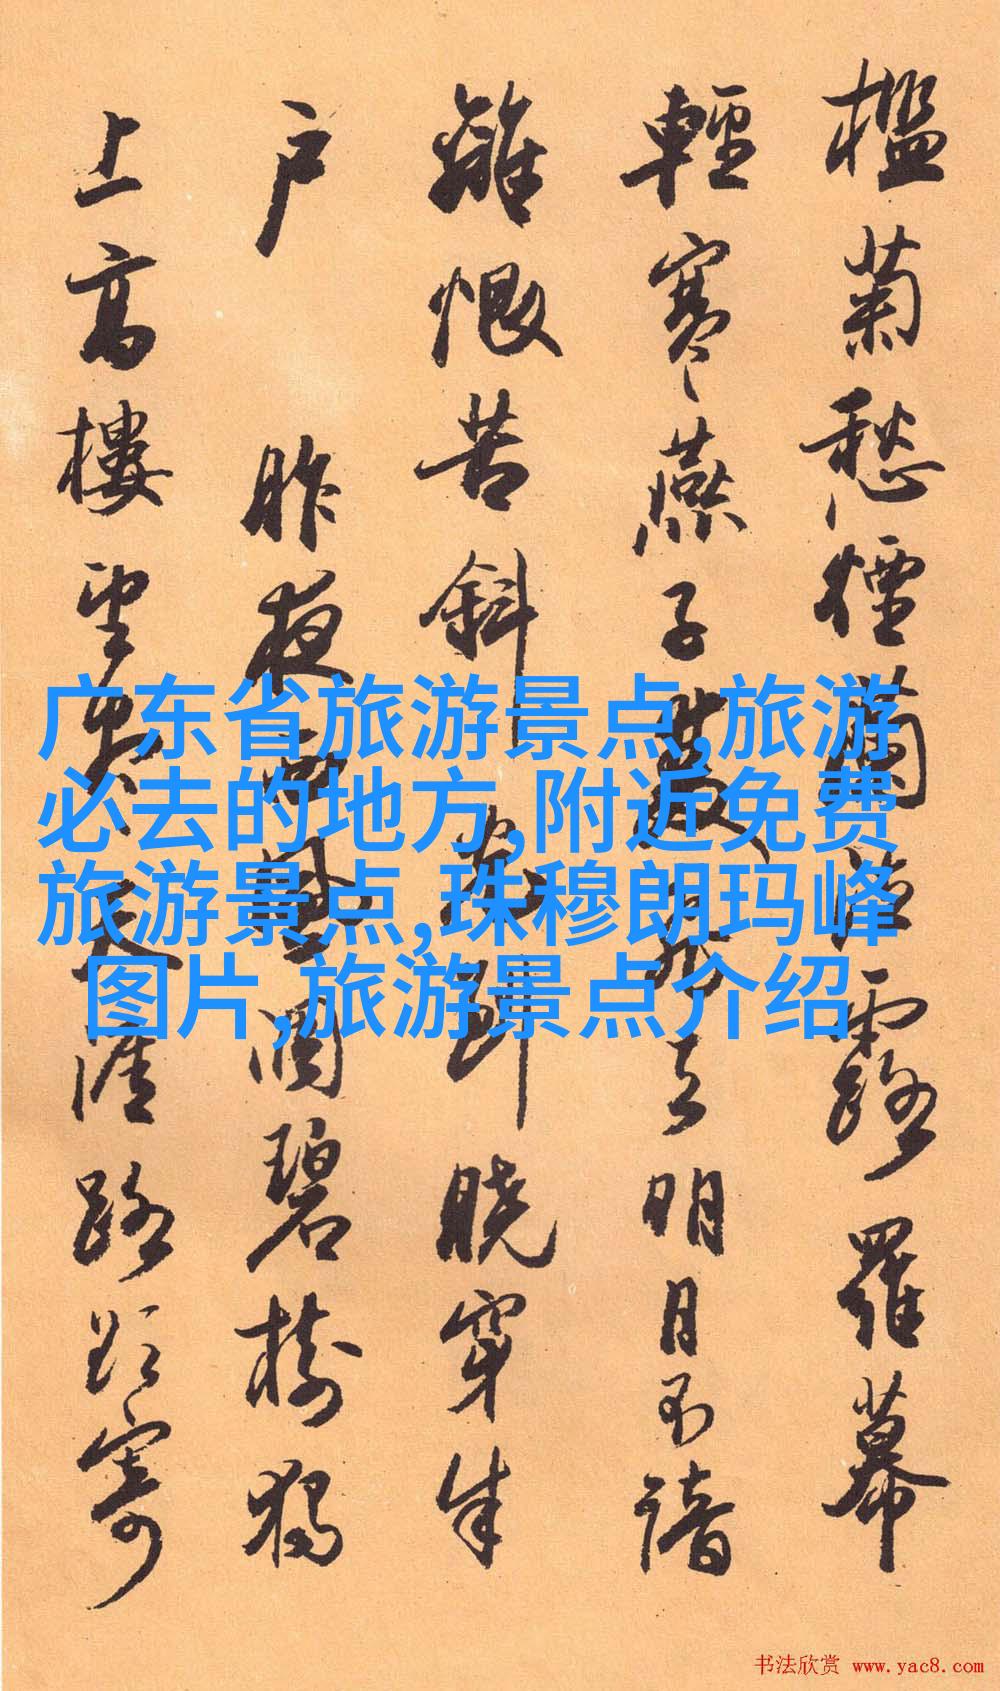 檻菊愁煙蘭泣露羅幕
輕寒燕子雙飛去明月不諳
離恨苦斜光到曉穿朱
戶 昨夜西風凋碧樹獨
上高樓望盡天涯路欲寄
广东省旅游景点,旅游
必去的地方,附近免费
旅游景点,珠穆朗玛峰
图片,旅游景点介绍
书法欣赏 www.yac8.com